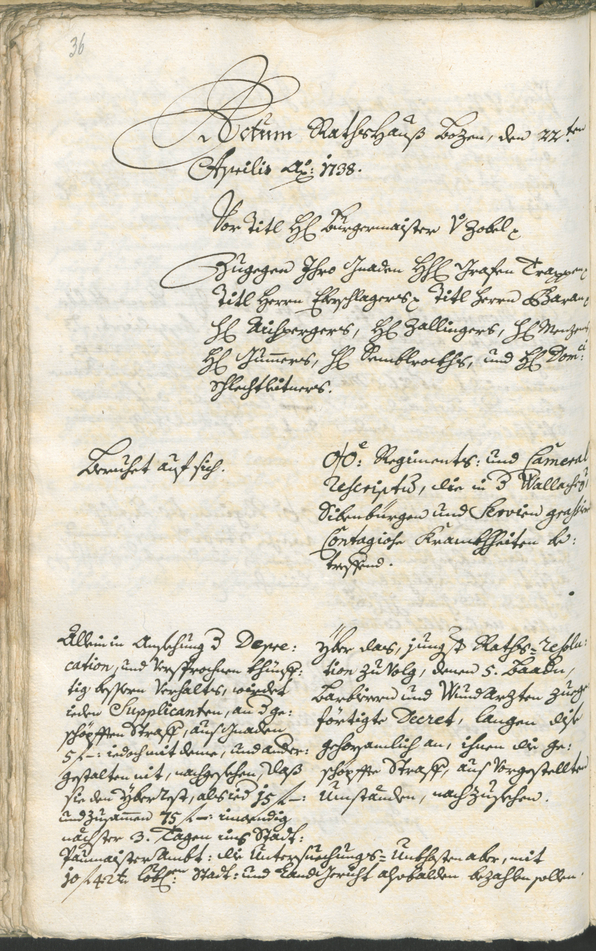 36
Actum RathsHauß Bozen, den 22.ten
Aprilis Ao: 1738.
Vor Titl Hl Burgermaister V Zobel
Zugegen Ihro Gnaden HHl Grafen Trappen
Titl Herrn Eberschlagers Titl Herrn
Hl Aichpergers, Hl Zallingers, Hl Menzen
Hl Gumers, Hl Semblrockhs, und Hl
Schlechtleitners.
Beruhet auf sich.
Regiments: und Cameral
Rescriptum, die in d Wallachey,
Sibenbürgen und Servien
Contagiose Krankhheiten be:
treffend.
Allein in Ansehung d Depre:
cation, und versprochnen khünff:
tig bessern Verhalts, wierdet
ieden Supplicanten, an d ge:
schöpften Straff, aus Gnaden
5 f –: iedoch mit deme, und ander:
gestalten nit, nachgesehen, daß
sie den yberrest, als ied 15 f –:
und zusamen 75 f –: inwendig
nächster 3. Tagen ins Statt:
Paumaister Ambt: die Untersuechungs= Unkhosten aber, mit
10 f 42 x löbl: Statt: und Landgericht alsobalden bezahlen sollen.
Yber das, jüngst Raths=Resolu:
tion zu Volg, denen 5. Baadn,
Barbieren und Wundarzten zuege
förtigte Decret, langen dise
gehorsamlich an, ihnen die ge:
schöpfte Straff, aus vorgestellten
Umständen, nachzusehen.